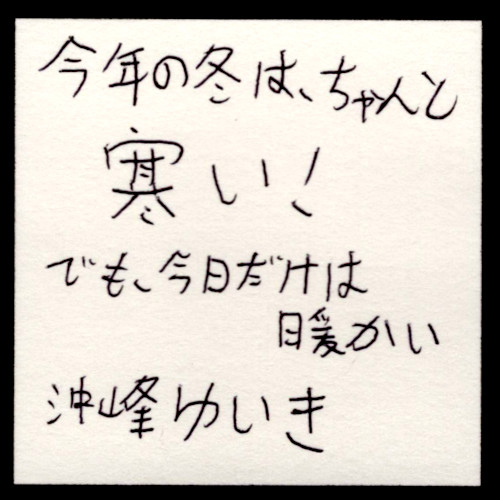 今年の冬は、ちゃんと
寒い！
でも、今日だけは
暖かい
沖峰ゆいき